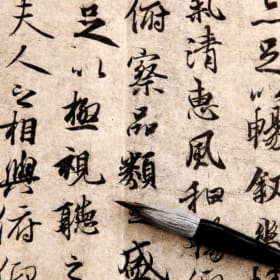 足以暢叙幽
氣清惠風和暢
俯察品類之盛
足以極視聽之
夫人之相與俯仰